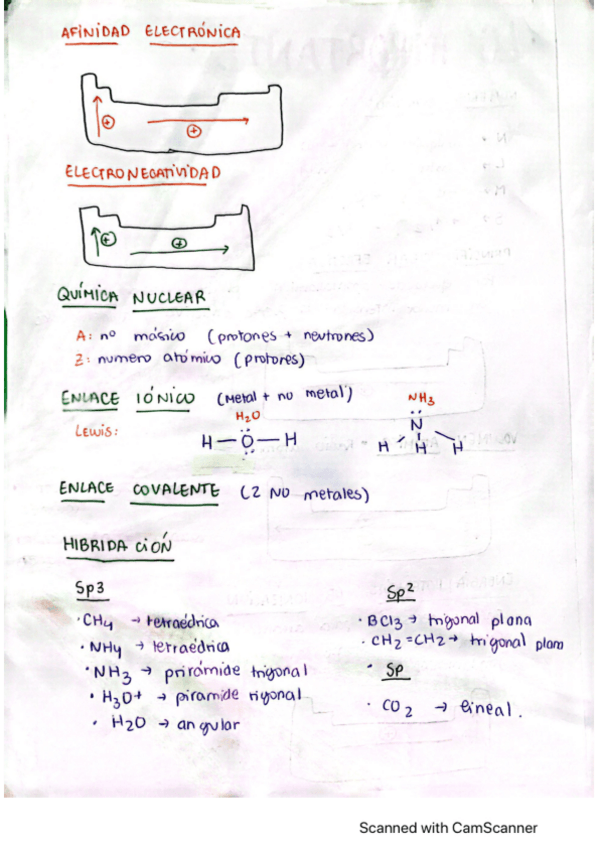 AFINIDAD ELECTRÓNICA
+
+
ELECTRONEGATIVIDAD
+
+
QUÍMICA NUCLEAR
A: nº másico (protones + neutrones)
Z: numero atómico (protores)
ENLACE IÓNICO (Metal + no metal)
Lewis:
H2O
H — O — H
NH3
N
H H H
ENLACE COVALENTE (2 NO metales)
HIBRIDACIÓN
Sp3
· CH4 → tetraédrica
· NH4 → tetraédrica
· NH3 → prirámide trigonal
· H3O+ → piramide rigonal
· H2O → angular
Sp2
· BCl3 → trigonal plana
· CH2=CH2 → trigonal plana
· Sp
· CO2 → lineal.
Scanned with CamScanner